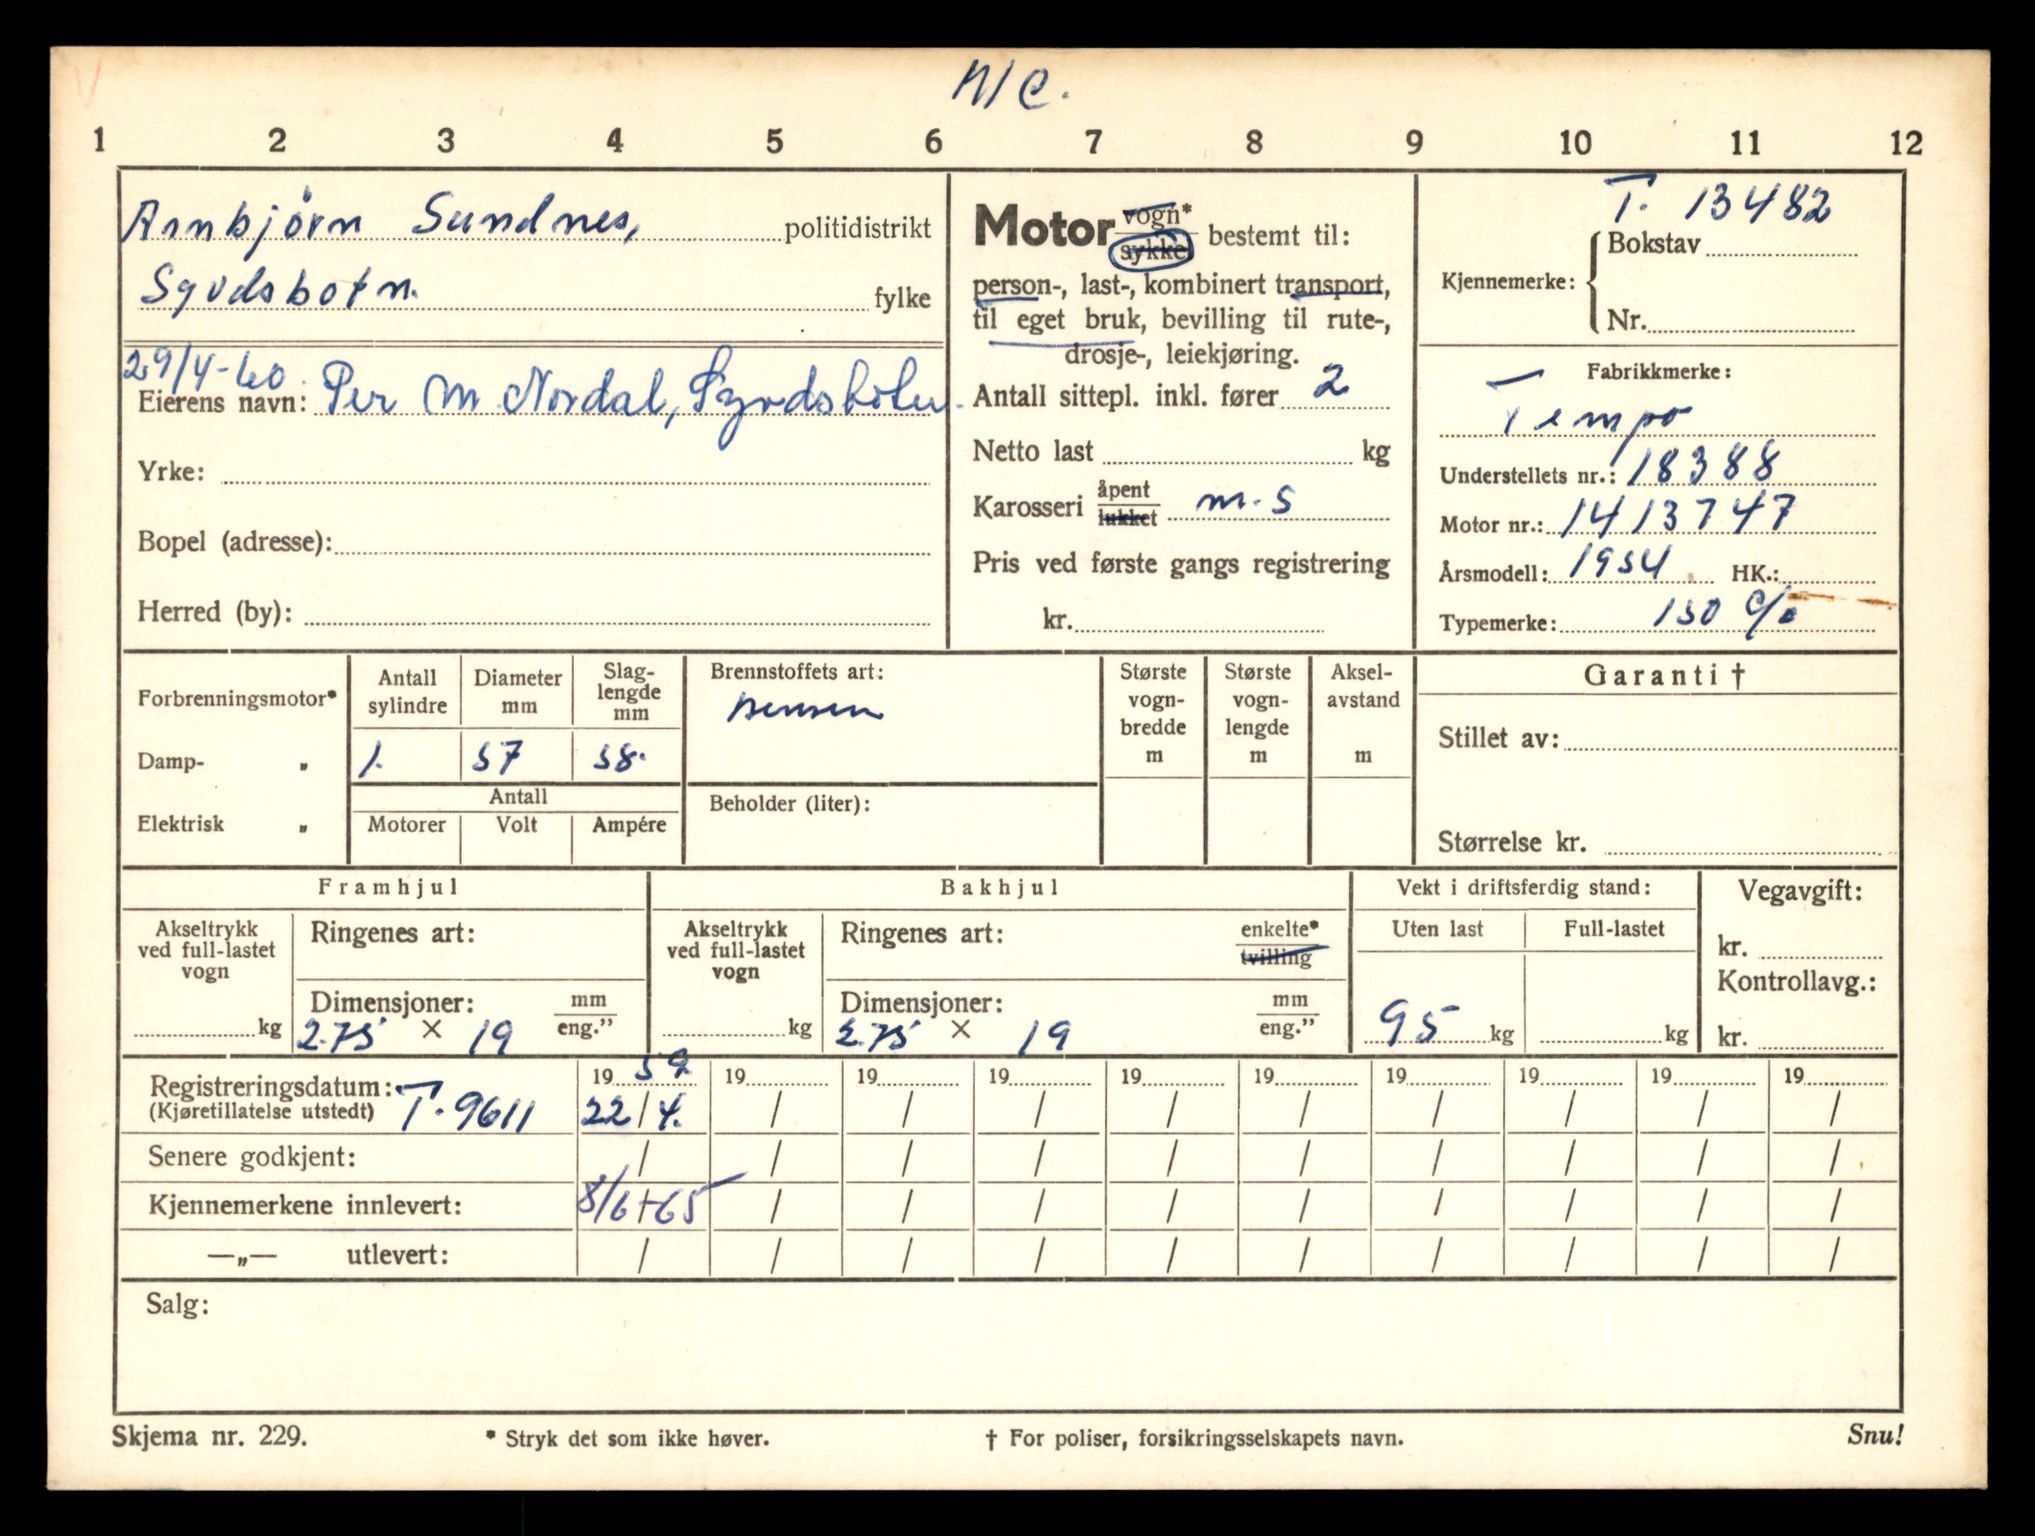 M/C.
1 2 3 4 5 6 7 8 9 10 11 12
Arnbjörn Sundnes, politidistrikt
Syvdsbotn. fylke
29/4-60.
Eierens navn: Per M. Nordal, Syvdsbotn.
Yrke:
Bopel (adresse):
Herred (by):
Motor vogn* sykkel bestemt til:
person-, last-, kombinert transport,
til eget bruk, bevilling til rute-,
drosje-, leiekjøring.
Antall sittepl. inkl. fører 2
Netto last kg
Karosseri åpent lukket m.s
Pris ved første gangs registrering
kr.
T. 13482
Kjennemerke: Bokstav
Nr.
Fabrikkmerke:
Tempo
Understellets nr.: 18388
Motor nr.: 1413747
Årsmodell: 1954 HK.:
Typemerke: 150 c/c
Forbrenningsmotor*
Damp- „
Elektrisk „
Antall sylindre
Diameter mm
Slag-lengde mm
1. 57 58.
Antall
Motorer Volt Ampére
Brennstoffets art:
bensin
Beholder (liter):
Største vogn-bredde m
Største vogn-lengde m
Aksel-avstand m
Garanti †
Stillet av:
Størrelse kr.
Framhjul
Akseltrykk ved full-lastet vogn
kg
Ringenes art:
Dimensjoner: mm eng."
2.75 × 19
Bakhjul
Akseltrykk ved full-lastet vogn
kg
Ringenes art: enkelte* tvilling
Dimensjoner: mm eng."
2.75 × 19
Vekt i driftsferdig stand:
Uten last Full-lastet
95 kg kg
Vegavgift:
kr.
Kontrollavg.:
kr.
Registreringsdatum: 19 59 19 19 19 19 19 19 19 19 19
(Kjøretillatelse utstedt) T. 9611 22/4. / / / / / / / / /
Senere godkjent: / / / / / / / / / /
Kjennemerkene innlevert: 8/6-65 / / / / / / / / /
—„— utlevert: / / / / / / / / / /
Salg:
Skjema nr. 229. * Stryk det som ikke høver. † For poliser, forsikringsselskapets navn. Snu!